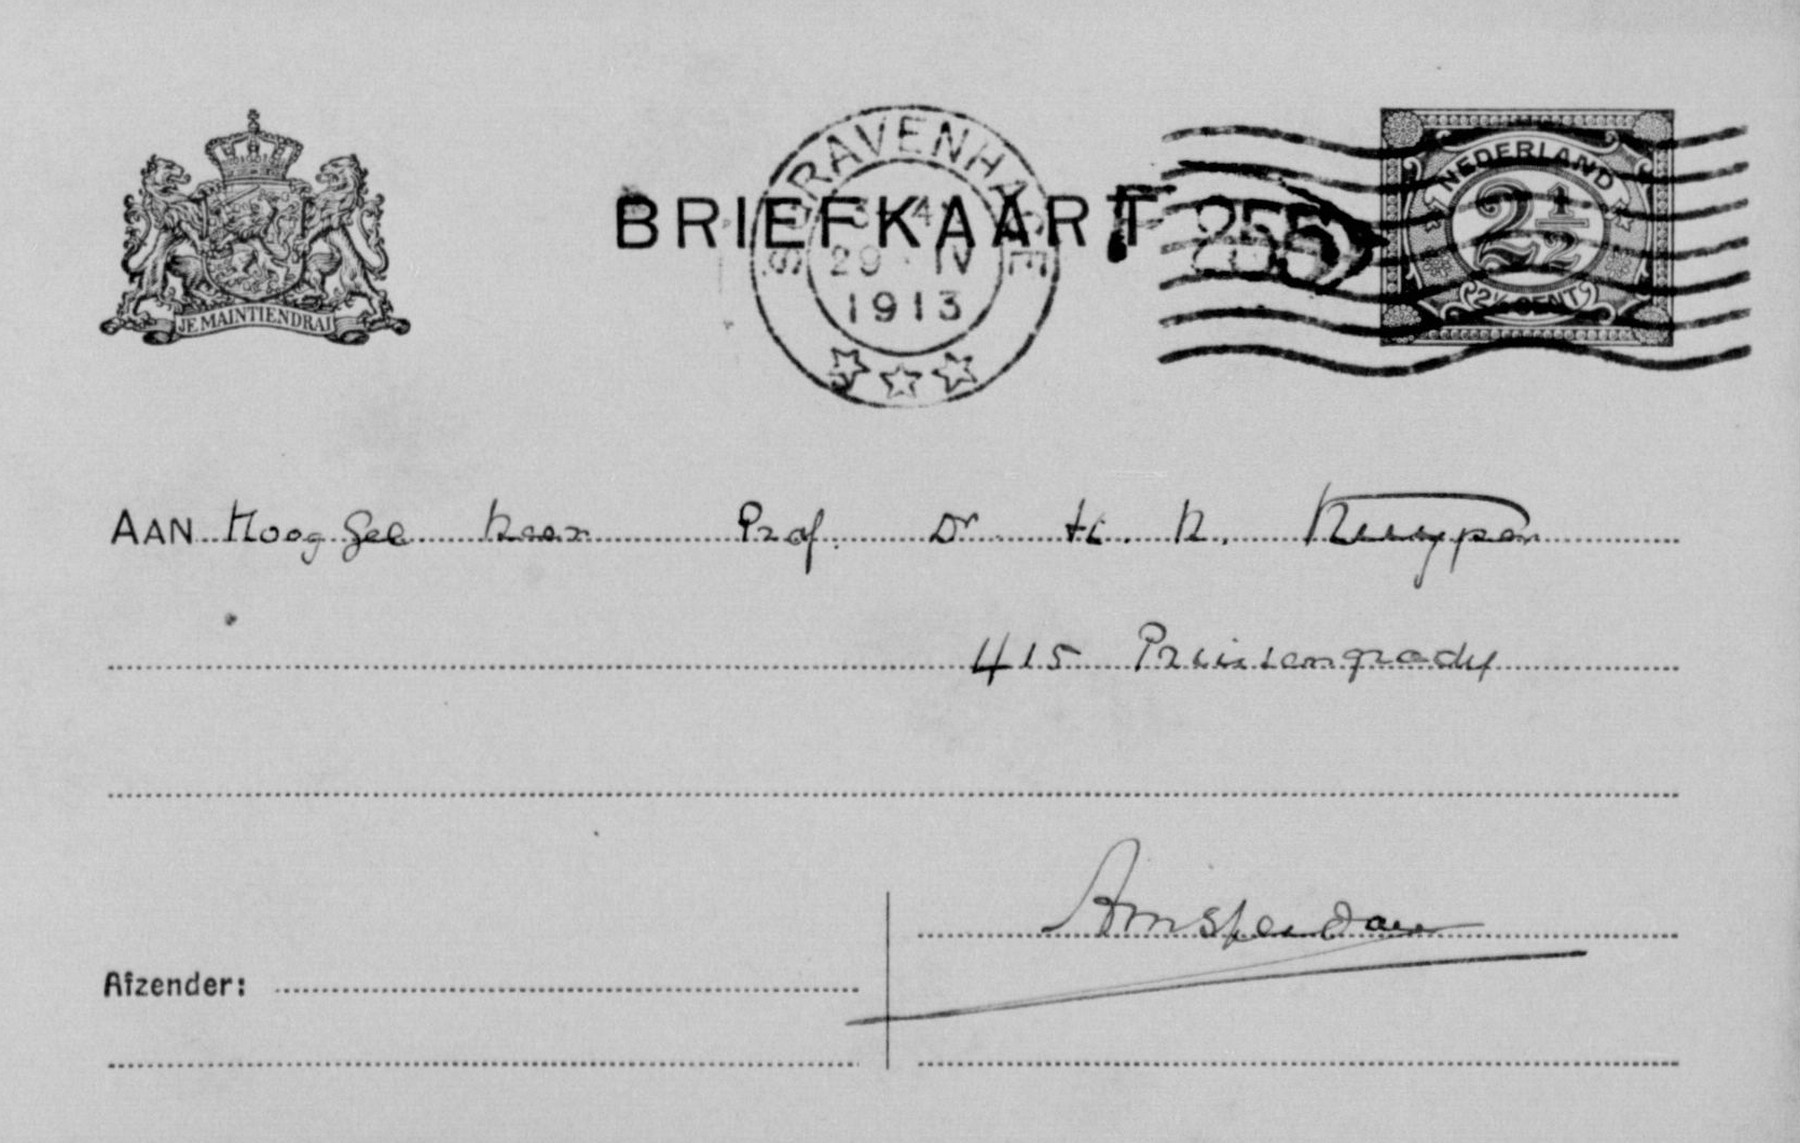 JE MAINTIENDRAI
BRIEFKAART
'S GRAVENHAGE
3-4
29 IV
1913
NEDERLAND
2½
2½ CENT
AAN Hoog Gel Heer Prof. Dr H. H. Kuyper
415 Prinsengracht
Amsterdam
Afzender: